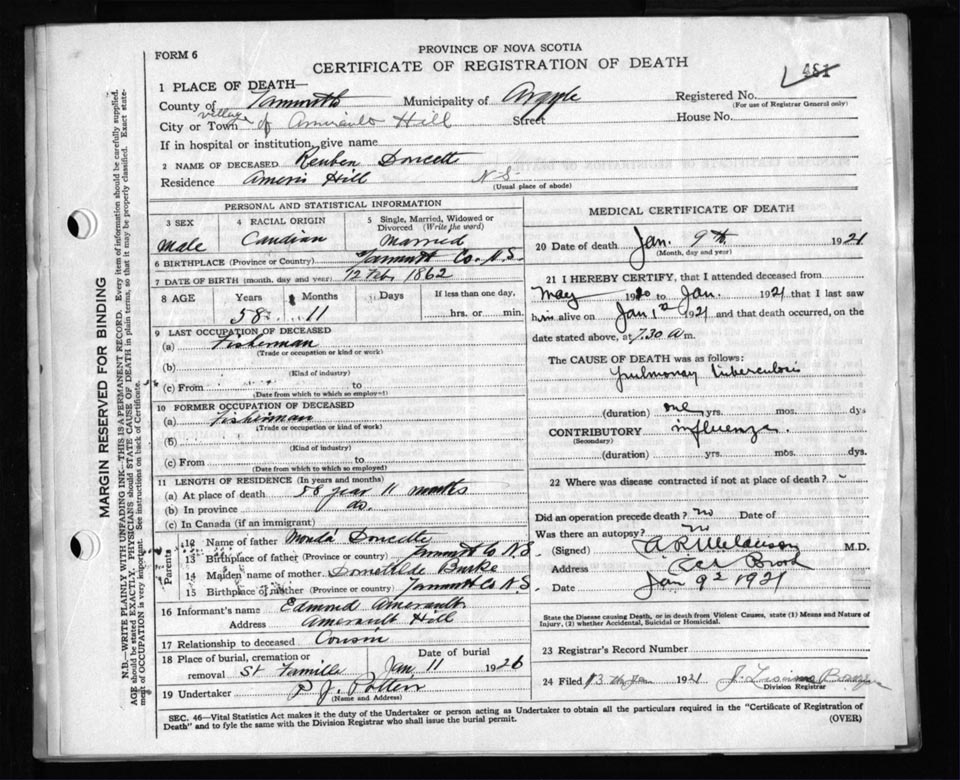 FORM 6
PROVINCE OF NOVA SCOTIA
CERTIFICATE OF REGISTRATION OF DEATH
481
1 PLACE OF DEATH—
County of Yarmouth Municipality of Argyle Registered No.
(For use of Registrar General only)
City or Town village of Amirault Hill Street House No.
If in hospital or institution, give name
2 NAME OF DECEASED Reuben Doucette
Residence Hill N S
(Usual place of abode)
PERSONAL AND STATISTICAL INFORMATION
3 SEX Male
4 RACIAL ORIGIN Candian
5 Single, Married, Widowed or Divorced (Write the word) Married
6 BIRTHPLACE (Province or Country) Co. N.S.
7 DATE OF BIRTH (month, day and year) 12 Feb. 1862
8 AGE Years Months Days If less than one day,
58 11 hrs. or min.
9 LAST OCCUPATION OF DECEASED
(a) Fisherman
(Trade or occupation or kind or work)
(b)
(Kind of industry)
(c) From to
(Date from which to which so employed)
10 FORMER OCCUPATION OF DECEASED
(a) Fisherman
(Trade or occupation or kind of work)
(b)
(Kind of industry)
(c) From to
(Date from which to which so employed)
11 LENGTH OF RESIDENCE (In years and months)
(a) At place of death 58 year 11 months
(b) In province do.
(c) In Canada (if an immigrant)
Parents
12 Name of father Doucette
13 Birthplace of father (Province or country) Co N.S.
14 Maiden name of mother Burke
15 Birthplace of mother (Province or country) Co N.S.
16 Informant's name Edmond Amerault
Address Amerault Hill
17 Relationship to deceased Couson
18 Place of burial, cremation or removal St Famille Date of burial Jan 11 1926
19 Undertaker P J
(Name and Address)
MEDICAL CERTIFICATE OF DEATH
20 Date of death Jan. 9th 1921
(Month, day and year)
21 I HEREBY CERTIFY, that I attended deceased from
May 1920 to Jan. 1921 that I last saw
him alive on Jan 1921 and that death occurred, on the
date stated above, at 7.30 a m.
The CAUSE OF DEATH was as follows:
pulmonay tuberculosis
(duration) one yrs. mos. dys
CONTRIBUTORY influenza.
(Secondary)
(duration) yrs. mos. dys.
22 Where was disease contracted if not at place of death?
Did an operation precede death? no Date of
Was there an autopsy? no
(Signed) A R M.D.
Address Brook
Date Jan 9 1921
State the Disease causing Death, or in death from Violent Causes, state (1) Means and Nature of
Injury, (2) whether Accidental, Suicidal or Homicidal.
23 Registrar's Record Number
24 Filed 13 Jan 1921 J.
Division Registrar
SEC. 46—Vital Statistics Act makes it the duty of the Undertaker or person acting as Undertaker to obtain all the particulars required in the "Certificate of Registration of
Death" and to fyle the same with the Division Registrar who shall issue the burial permit.
(OVER)
MARGIN RESERVED FOR BINDING
N.B.—WRITE PLAINLY WITH UNFADING INK—THIS IS A PERMANENT RECORD. Every item of information should be carefully supplied.
AGE should be stated EXACTLY. PHYSICIANS should STATE CAUSE OF DEATH in plain terms, so that it may be properly classified. Exact state-
ment of OCCUPATION is very important. See instructions on back of Certificate.